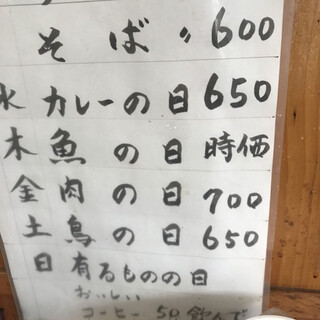 そば 〃 600
水 カレーの日 650
木 魚の日 時価
金 肉の日 700
土 鳥の日 650
日 有るものの日
おいしい
コーヒー 50 飲んで